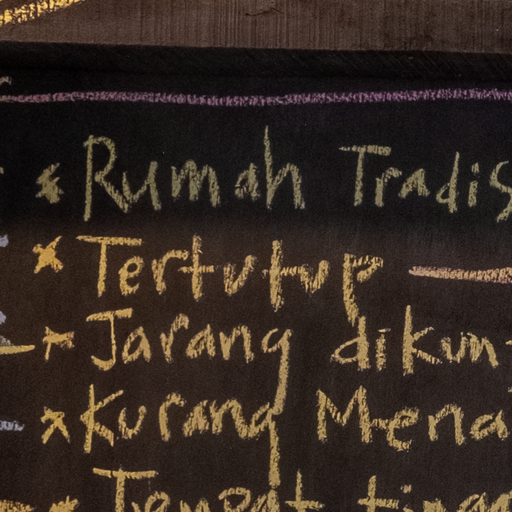 * Rumah Tradis
* Tertutup —
* Jarang dikun
* Kurang Mena
Tempat tingg